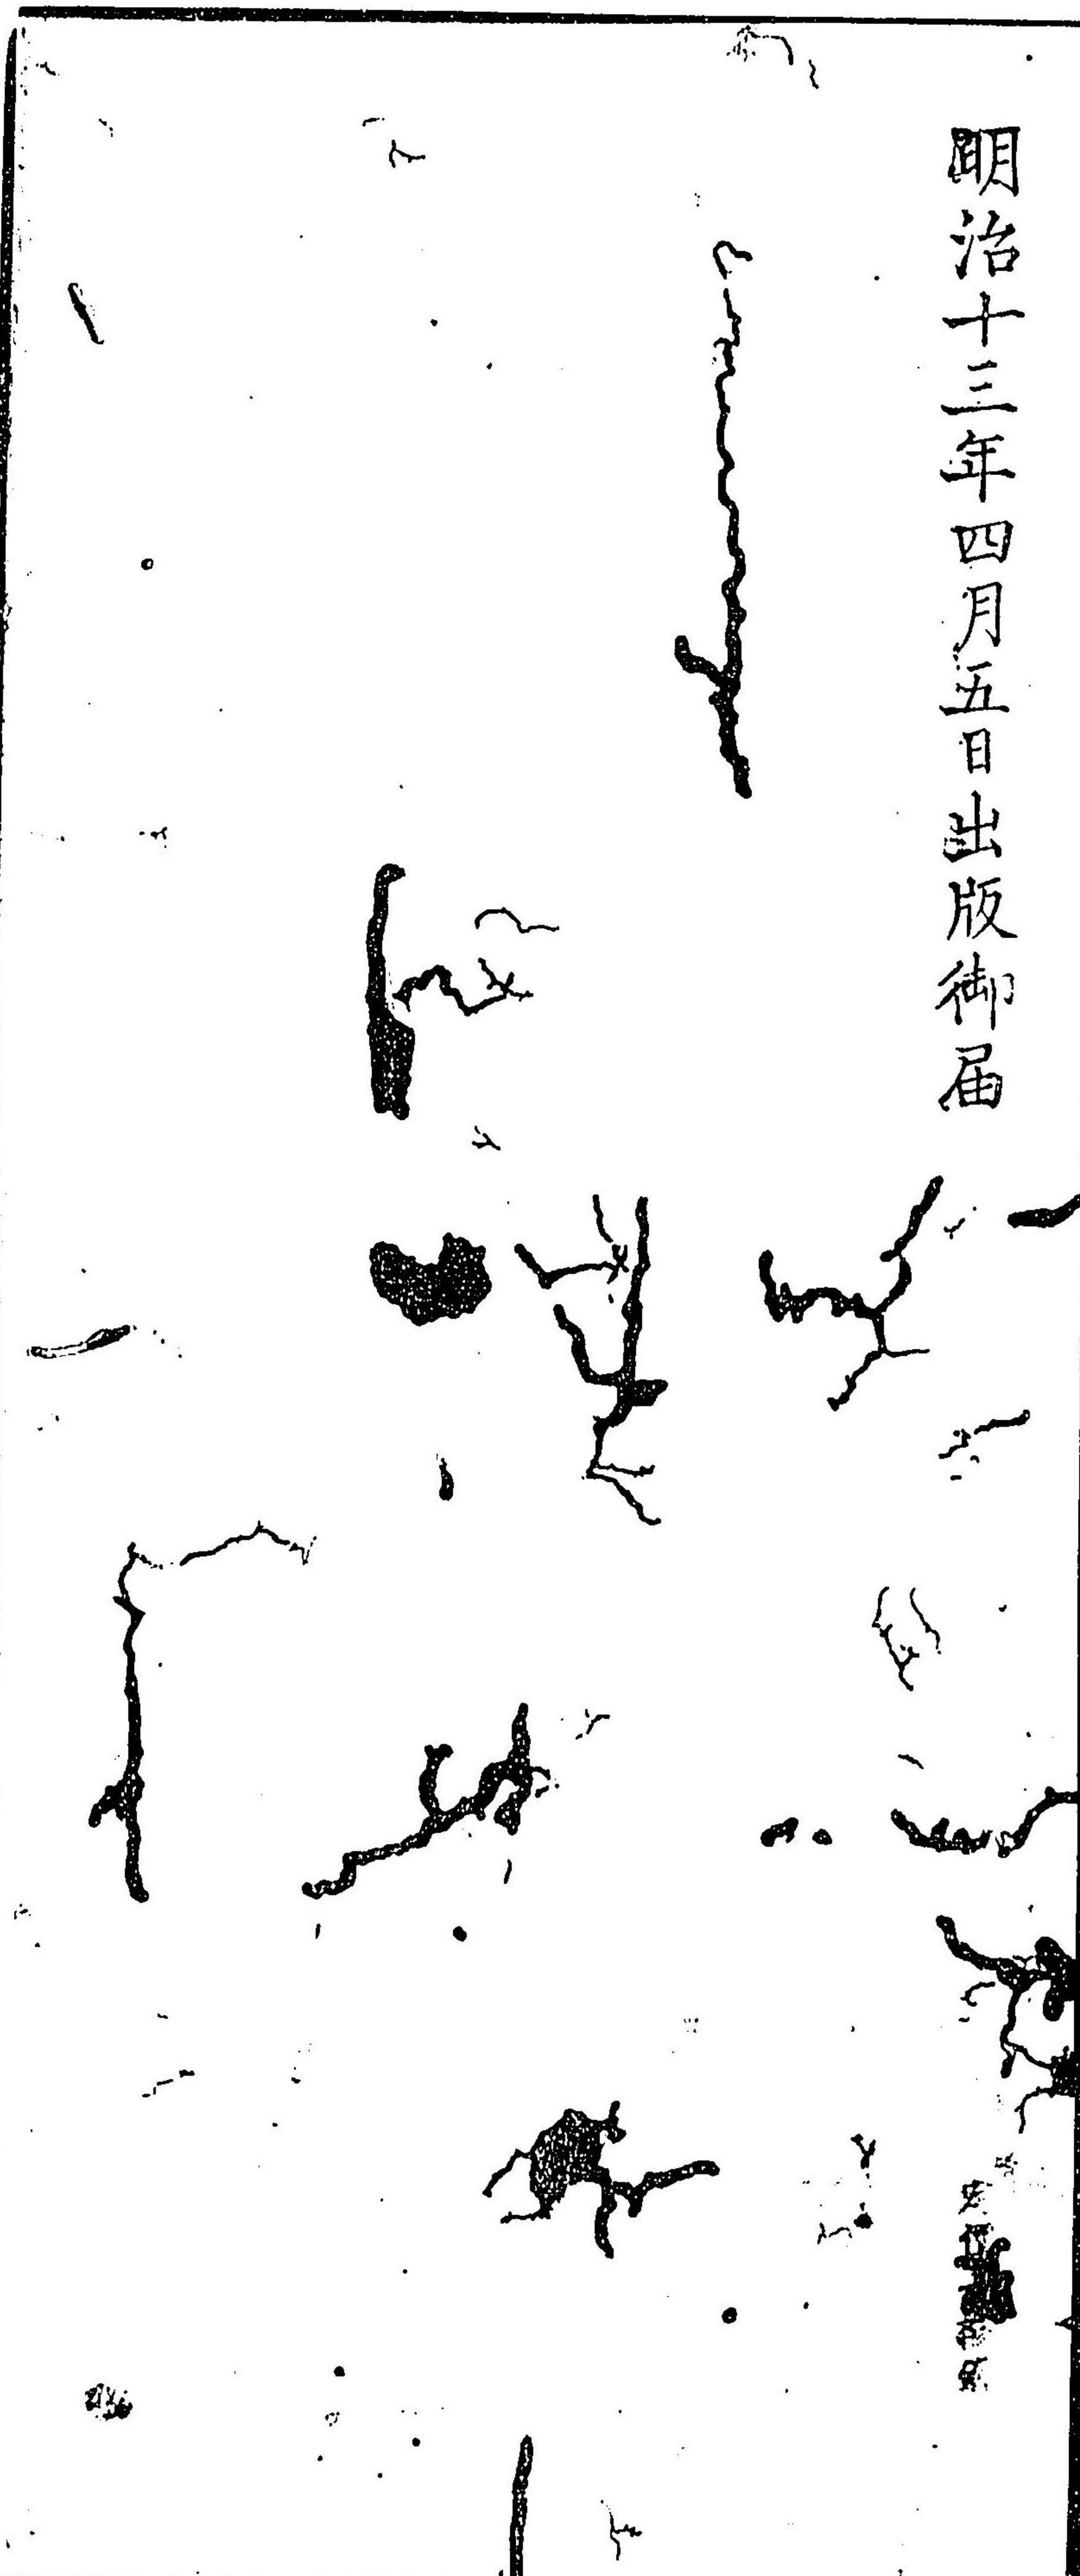 明治十三年四月五日出版御届